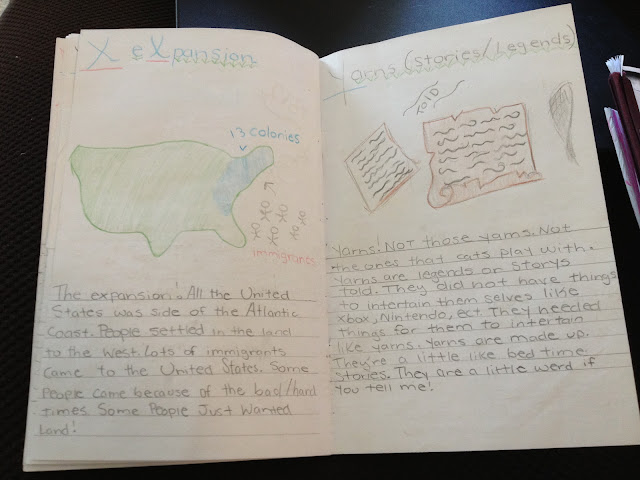 X eXpansion
13 Colonies
immigrants
The expansion! All the United
States was side of the Atlantic
Coast. People settled in the land
to the west. Lots of immigrants
came to the United States. Some
People came because of the bad/hard
times. Some People Just Wanted
Land!
Yarns (Stories/Legends)
TOLD
Yarns! NOT those yarns. Not
the ones that cats play with.
Yarns are legends or storys
told. They did not have things
to intertain them selves like
Xbox, Nintendo, ect. They needed
things for them to intertain
like yarns. Yarns are made up.
They're a little like bed time
stories. They are a little werd if
You tell me!